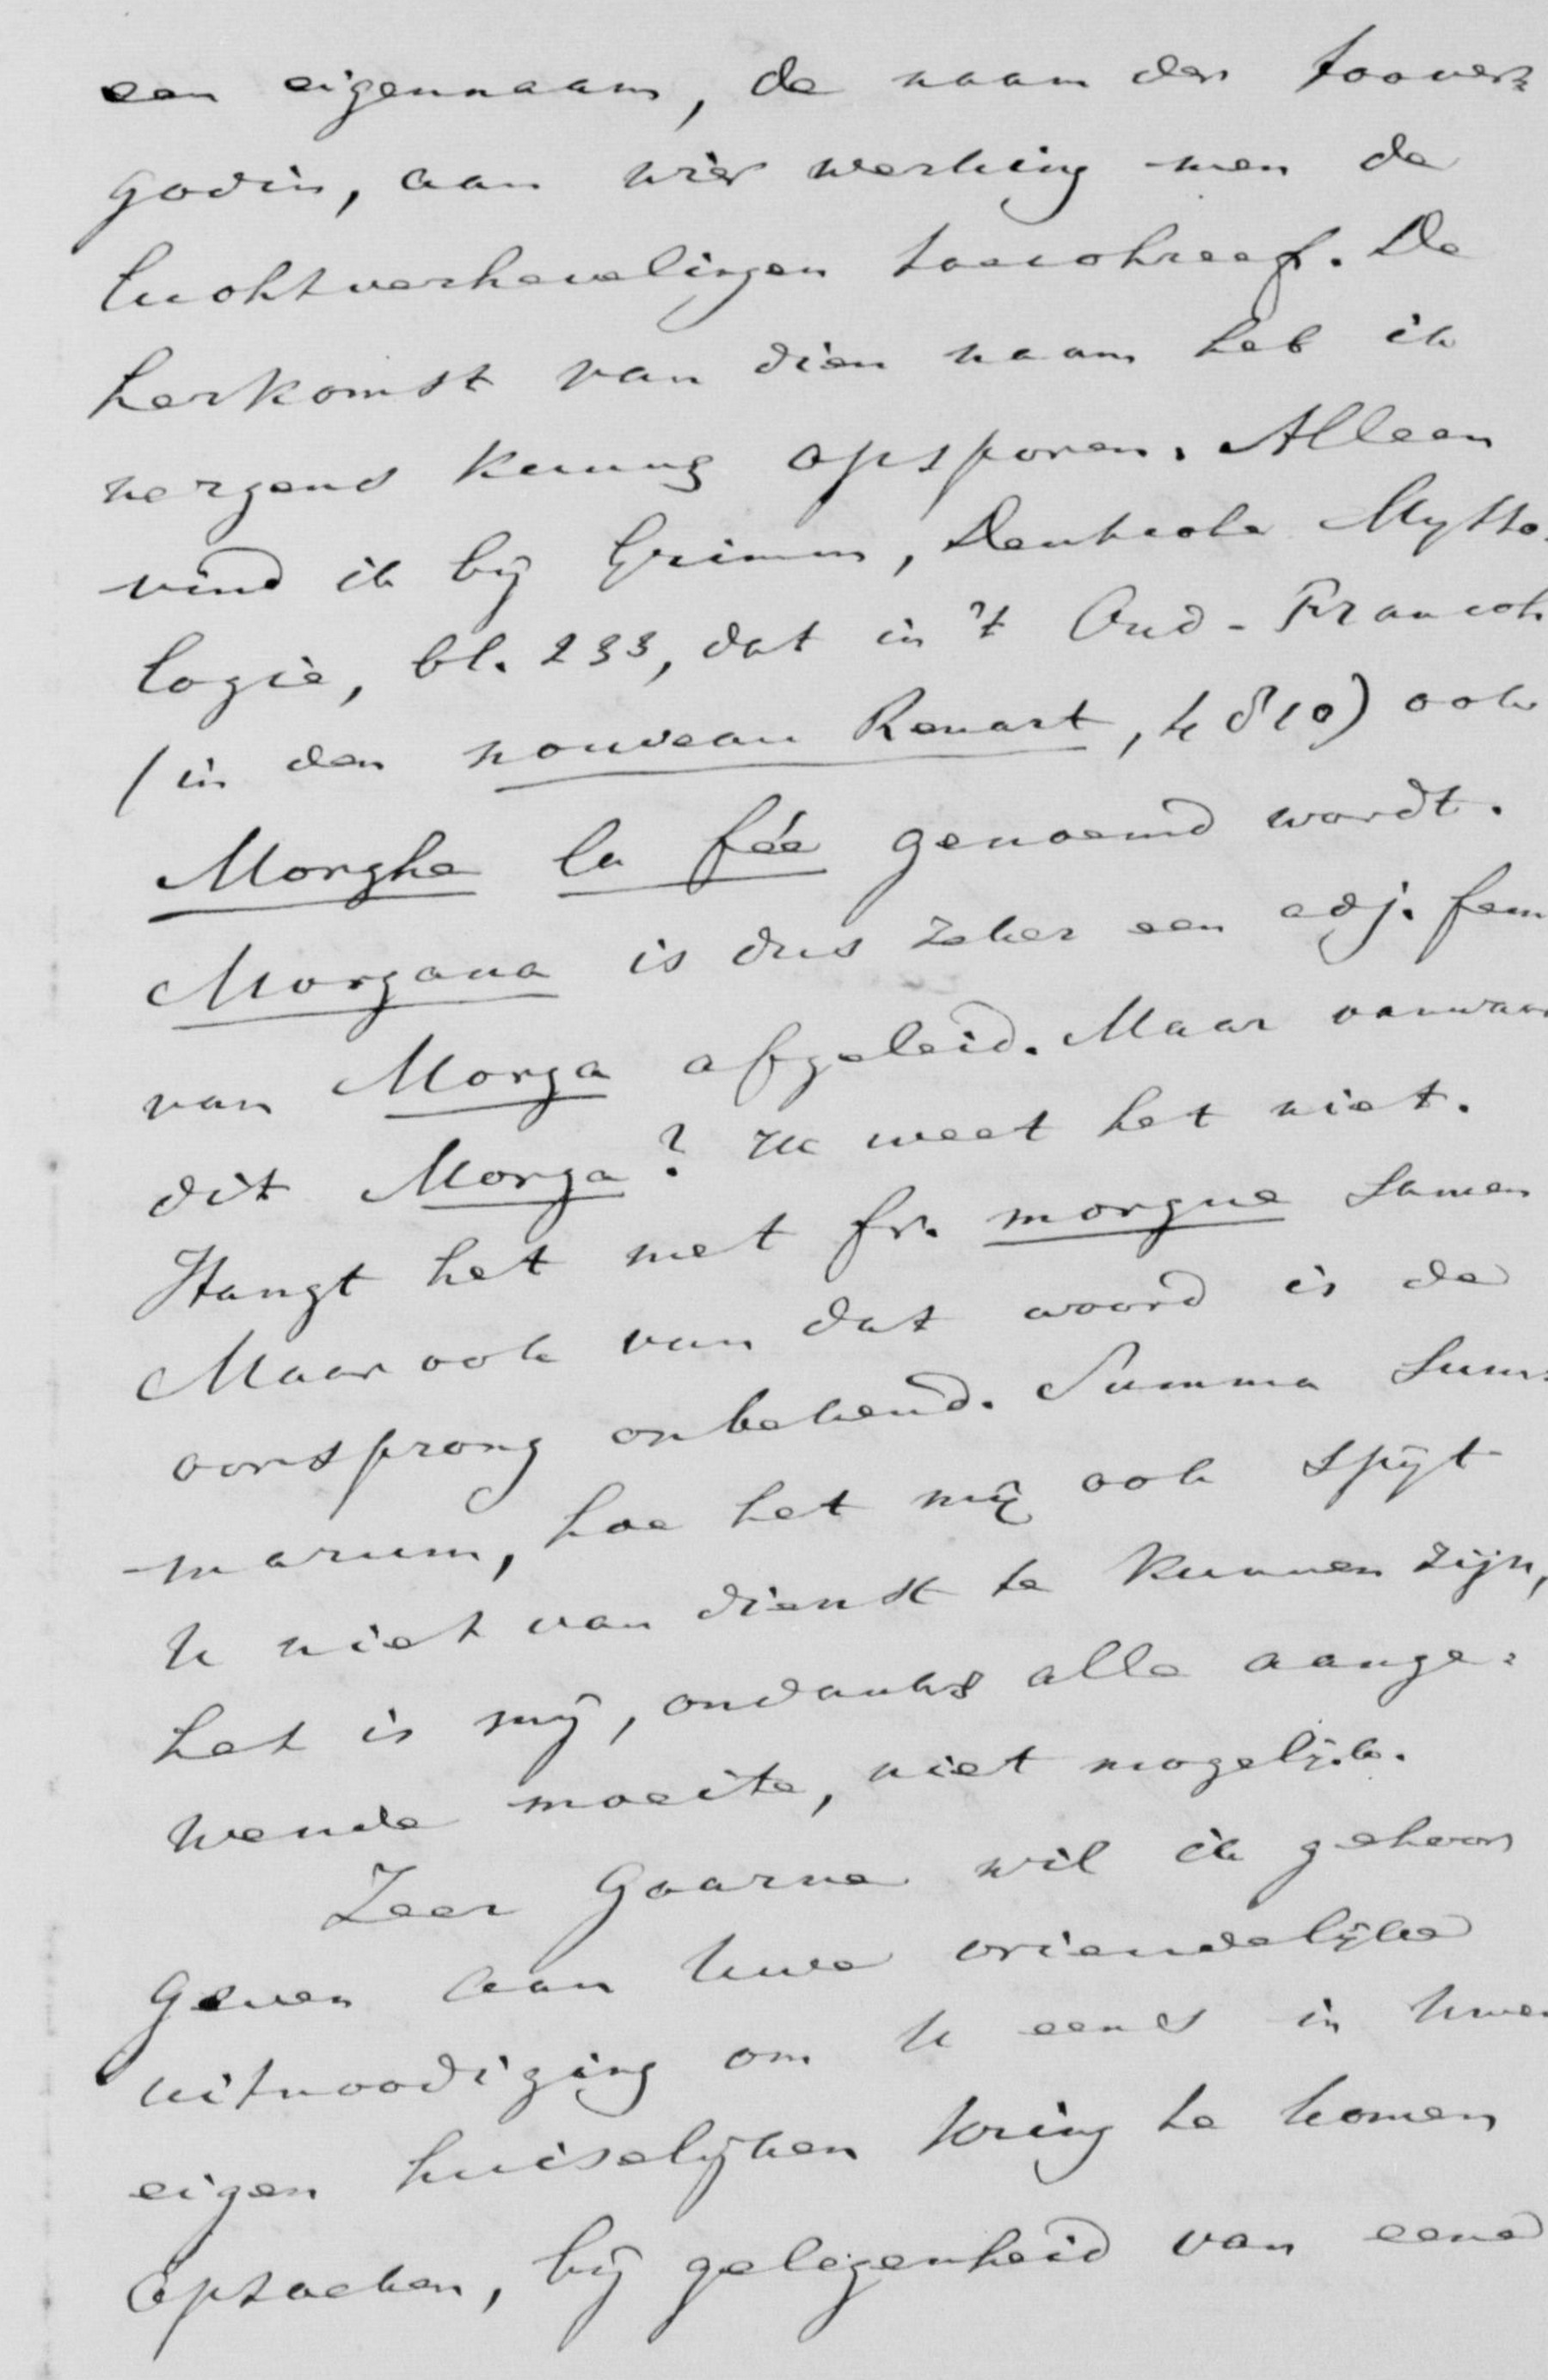 een eigennaam, de naam der toover=
godin, aan wier werking men de
luchtverhevelingen toeschreef. De
herkomst van dien naam heb ik
nergens kunnen opsporen. Alleen
vind ik bij Grimm, Deutsche Mytho-
logie, bl. 233, dat in 't Oud-Fransch
(in den nouveau Renart, 4810) ook
Morghe la fée genoemd wordt.
Morgana is dus zeker een adj. fem
van Morga afgeleid. Maar vanwaar
dit Morga? Ik weet het niet.
Hangt het met fr. morgue samen
Maar ook van dat woord is de
oorsprong onbekend. Summa sum=
marum, hoe het mij ook spijt
U niet van dienst te kunnen zijn,
het is mij, ondanks alle aange=
wende moeite, niet mogelijk.
Zeer gaarne wil ik gehoor
geven aan Uwe vriendelijke
uitnoodiging om U eens in Uwen
eigen huiselijken kring te komen
opzoeken, bij gelegenheid van eene